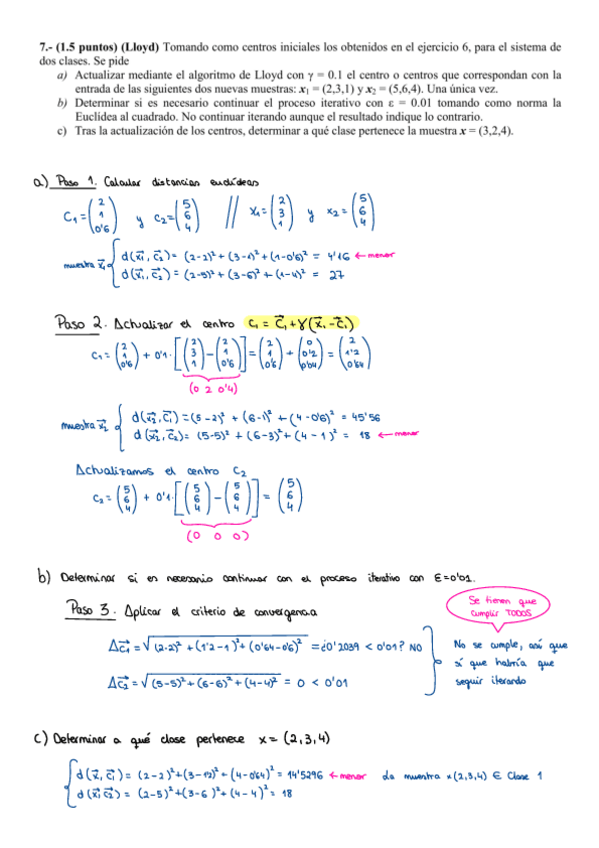 7.- (1.5 puntos) (Lloyd) Tomando como centros iniciales los obtenidos en el ejercicio 6, para el sistema de
dos clases. Se pide
a) Actualizar mediante el algoritmo de Lloyd con γ = 0.1 el centro o centros que correspondan con la
entrada de las siguientes dos nuevas muestras: x₁ = (2,3,1) y x₂ = (5,6,4). Una única vez.
b) Determinar si es necesario continuar el proceso iterativo con ε = 0.01 tomando como norma la
Euclídea al cuadrado. No continuar iterando aunque el resultado indique lo contrario.
c) Tras la actualización de los centros, determinar a qué clase pertenece la muestra x = (3,2,4).
a) Paso 1. Calcular distancias euclídeas
C₁ = (2 1 0'6) y C₂ = (5 6 4) // x₁ = (2 3 1) y x₂ = (5 6 4)
muestra x₁
d(x₁, c₂) = (2-2)² + (3-1)² + (1-0'6)² = 4'16 ← menor
d(x₁, c₂) = (2-5)² + (3-6)² + (1-4)² = 27
Paso 2. Actualizar el centro C₁ = C₁ + γ(x₁ - c₁)
C₁ = (2 1 0'6) + 0'1 · [(2 3 1) - (2 1 0'6)] = (2 1 0'6) + (0 0'2 0'04) = (2 1'2 0'64)
(0 2 0'4)
muestra x₂
d(x₂, c₁) = (5-2)² + (6-1)² + (4-0'6)² = 45'56
d(x₂, c₂) = (5-5)² + (6-3)² + (4-1)² = 18 ← menor
Actualizamos el centro C₂
C₂ = (5 6 4) + 0'1 · [(5 6 4) - (5 6 4)] = (5 6 4)
(0 0 0)
b) Determinar si es necesario continuar con el proceso iterativo con ε=0'01.
Paso 3. Aplicar el criterio de convergencia
Se tienen que
cumplir TODOS
Δc₁ = √(2-2)² + (1'2-1)² + (0'64-0'6)² = ¿0'2039 < 0'01? NO
Δc₂ = √(5-5)² + (6-6)² + (4-4)² = 0 < 0'01
No se cumple, así que
sí que habría que
seguir iterando
c) Determinar a qué clase pertenece x = (2,3,4)
d(x, c₁) = (2-2)² + (3-1'2)² + (4-0'64)² = 14'5296 ← menor La muestra x(2,3,4) ∈ Clase 1
d(x, c₂) = (2-5)² + (3-6)² + (4-4)² = 18